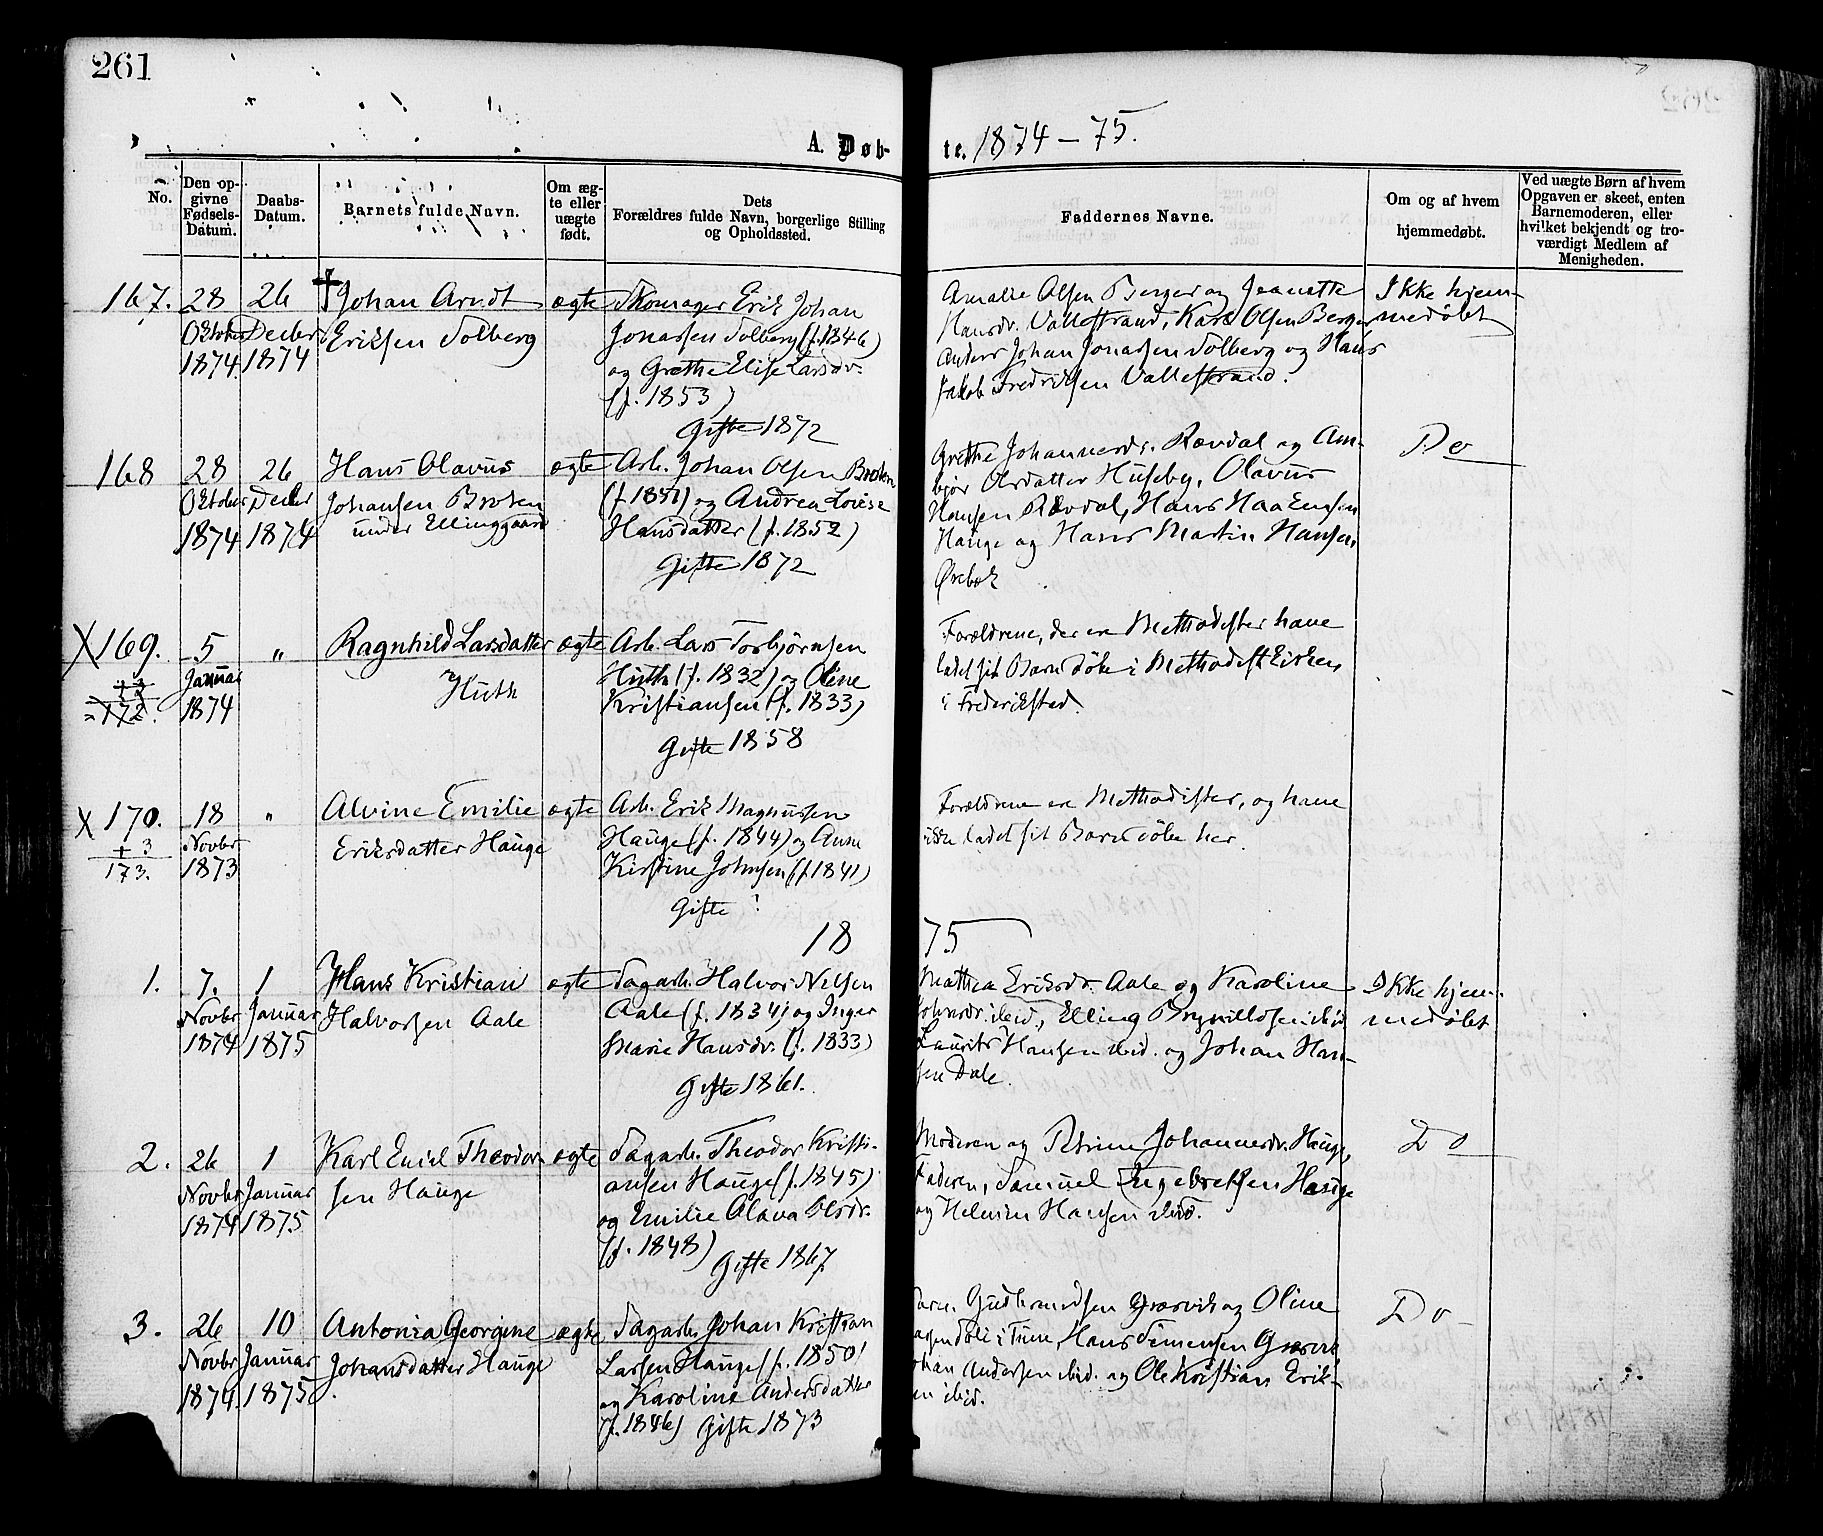 261
A. Døb-
te. 1874 – 75.
No.
Den op-
givne
Fødsels-
Datum.
Daabs-
Datum.
Barnets fulde Navn.
Om æg-
te eller
uægte
født.
Dets
Forældres fulde Navn, borgerlige Stilling
og Opholdssted.
Faddernes Navne.
Om og af hvem
hjemmedøbt.
Ved uægte Børn af hvem
Opgaven er skeet, enten
Barnemoderen, eller
hvilket bekjendt og tro-
værdigt Medlem af
Menigheden.
167.
28
Oktober
1874.
26
Decbr
1874
† Johan Arndt
Eriksen Solberg
ægte
Skomager Erik Johan
Jonassen Solberg (f. 1846)
og Grethe Elise Larsdr.
(f. 1853)
Gifte 1872
Amalie Olsen Berger og Jeanette
Hansdr. Vallestrand, Karl Olsen Berger
Anders Johan Jonassen Solberg og Hans
Jakob Fredriksen Vallestrand.
Ikke hjem-
medøbt
168
28
Oktober
1874
26
Decbr
1874
Hans Olavus
Johansen Broten
under Ellinggaard
ægte
Arb. Johan Olsen Broten
(f. 1851) og Andrea Lovise
Hansdatter (f. 1852)
Gifte 1872
Grethe Johannesdr. Rævdal og Am-
bjør Olsdatter Huseby, Olavus
Hansen Rævdal, Hans Haakensen
Hauge og Hans Martin Hansen
Ørebæk
Do
X 169.
+ 3
= 172.
5
Januar
1874
"
Ragnhild Larsdatter
Huth
ægte
Arb. Lars Torbjørnsen
Huth (f. 1832) og Oline
Kristiansen (f. 1833)
Gifte 1858
Forældrene, der er Methodister have
ladet sit Barn døbe i Methodistkirken
i Frederikstad.
X 170.
+ 3
173.
18
Novbr
1873
"
Alvine Emilie
Eriksdatter Hauge
ægte
Arb. Erik Magnussen
Hauge (f. 1844) og Anne
Kirstine Johnsen (f. 1841)
Gifte ?
Forældrene er Methodister, og have
ikke ladet sit Barn døbe her.
18
75
1.
7.
Novbr
1874
1
Januar
1875
Hans Kristian
Halvorsen Aale
ægte
Sagarb. Halvor Nilsen
Aale (f. 1834) og Inger
Marie Hansdr. (f. 1833)
Gifte 1861.
Mathea Eriksdr. Aale og Karoline
ibid, Elling Brynildsen ibid
Laurits Hansen ibid. og Johan Han-
sen Dale.
Ikke hjem-
medøbt
2.
26
Novbr
1874
1
Januar
1875
Karl Emil Theodor-
sen Hauge
ægte
Sagarb. Theodor Kristi-
ansen Hauge (f. 1845)
og Emilie Olava Olsdr.
(f. 1848)
Gifte 1867
Moderen og Petrine Johannesdr. Hauge,
Faderen, Samuel Ingebretsen Hauge
og Helmin Hansen ibid.
Do
3.
26
Novbr
1874.
10
Januar
1875
Antonia Georgine
Johansdatter Hauge
ægte
Sagarb. Johan Kristian
Larsen Hauge (f. 1850)
og Karoline Andersdatter
(f. 1846) Gifte 1873
Gudbrandsen Græsvik og Oline
i Tune, Hans Simensen Græsvik
Andersen ibid. og Ole Kristian Erik-
en ibid.
Do